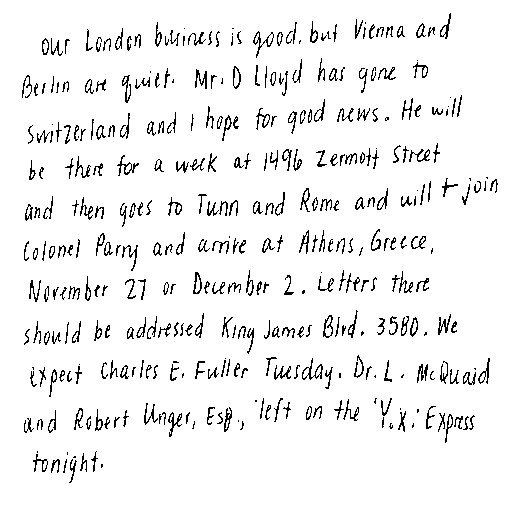 our London business is good, but Vienna and
Berlin are quiet. Mr. D Lloyd has gone to
Switzerland and I hope for good news. He will
be there for a week at 1496 Zermott Street
and then goes to Tunn and Rome and will + join
Colonel Parry and arrive at Athens, Greece,
November 27 or December 2. Letters there
should be addressed King James Blvd. 3580. We
expect Charles E. Fuller Tuesday. Dr. L. McQuaid
and Robert Unger, Esq., left on the 'Y.X.' Express
tonight.